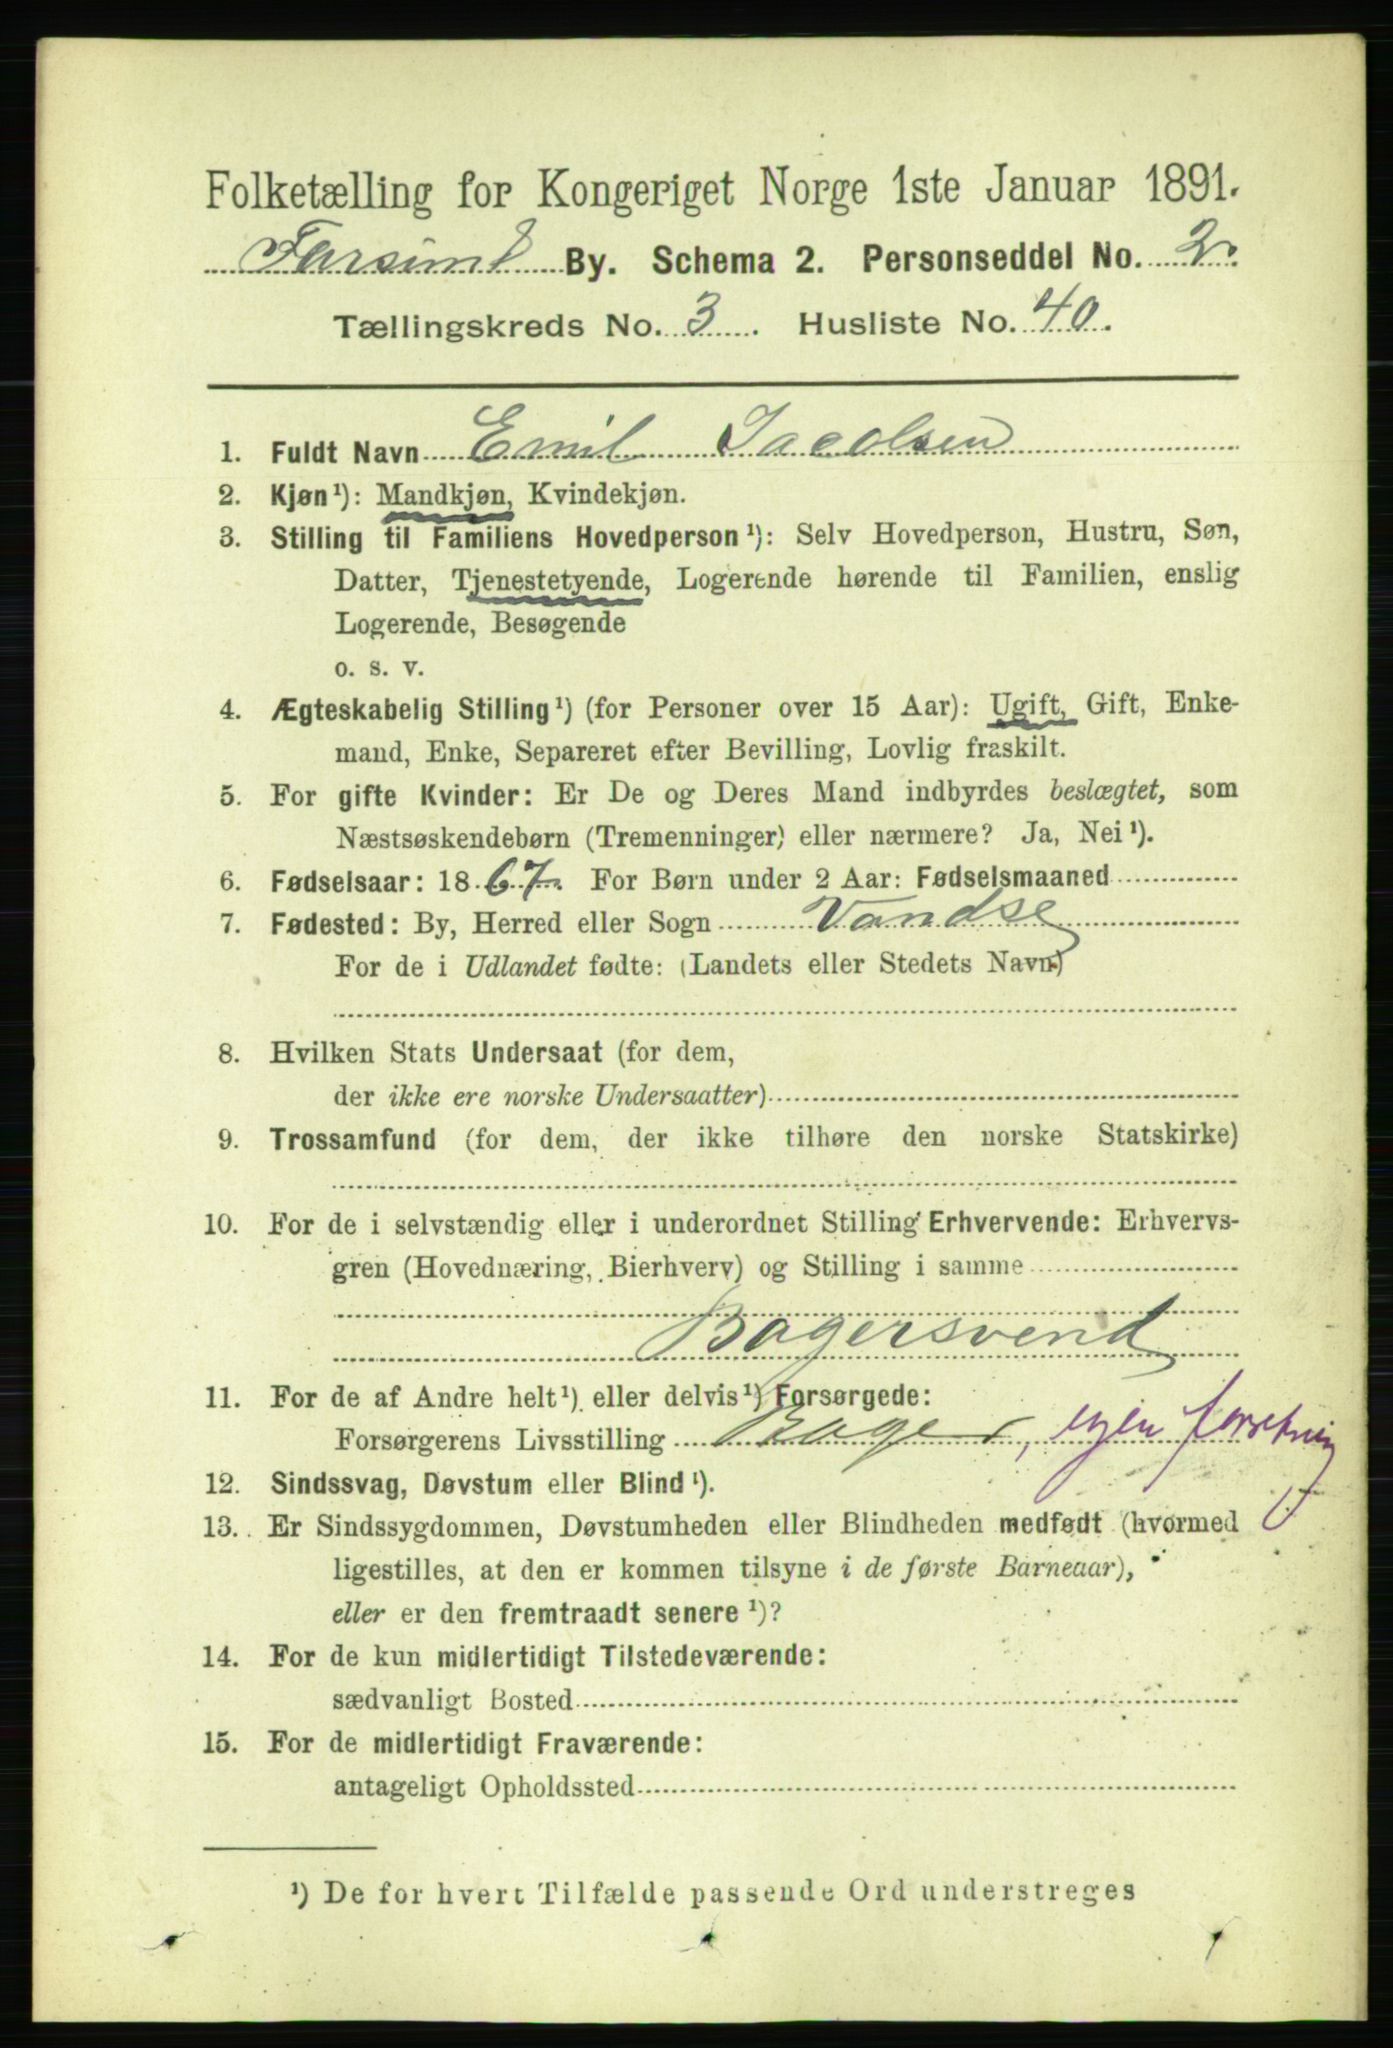 Folketælling for Kongeriget Norge 1ste Januar 1891.
Farsund By. Schema 2. Personseddel No. 2.
Tællingskreds No. 3. Husliste No. 40.
1. Fuldt Navn Emil Jacobsen
2. Kjøn¹): Mandkjøn, Kvindekjøn.
3. Stilling til Familiens Hovedperson¹): Selv Hovedperson, Hustru, Søn,
Datter, Tjenestetyende, Logerende hørende til Familien, enslig
Logerende, Besøgende
o. s. v.
4. Ægteskabelig Stilling¹) (for Personer over 15 Aar): Ugift, Gift, Enke-
mand, Enke, Separeret efter Bevilling, Lovlig fraskilt.
5. For gifte Kvinder: Er De og Deres Mand indbyrdes beslægtet, som
Næstsøskendebørn (Tremenninger) eller nærmere? Ja, Nei¹).
6. Fødselsaar: 1867. For Børn under 2 Aar: Fødselsmaaned
7. Fødested: By, Herred eller Sogn Vandse
For de i Udlandet fødte: (Landets eller Stedets Navn)
8. Hvilken Stats Undersaat (for dem,
der ikke ere norske Undersaatter)
9. Trossamfund (for dem, der ikke tilhøre den norske Statskirke)
10. For de i selvstændig eller i underordnet Stilling Erhvervende: Erhvervs-
gren (Hovednæring, Bierhverv) og Stilling i samme
Bagersvend
11. For de af Andre helt¹) eller delvis¹) Forsørgede:
Forsørgerens Livsstilling Bager, egen forretning
12. Sindssvag, Døvstum eller Blind¹).
13. Er Sindssygdommen, Døvstumheden eller Blindheden medfødt (hvormed
ligestilles, at den er kommen tilsyne i de første Barneaar),
eller er den fremtraadt senere¹)?
14. For de kun midlertidigt Tilstedeværende:
sædvanligt Bosted
15. For de midlertidigt Fraværende:
antageligt Opholdssted
¹) De for hvert Tilfælde passende Ord understreges